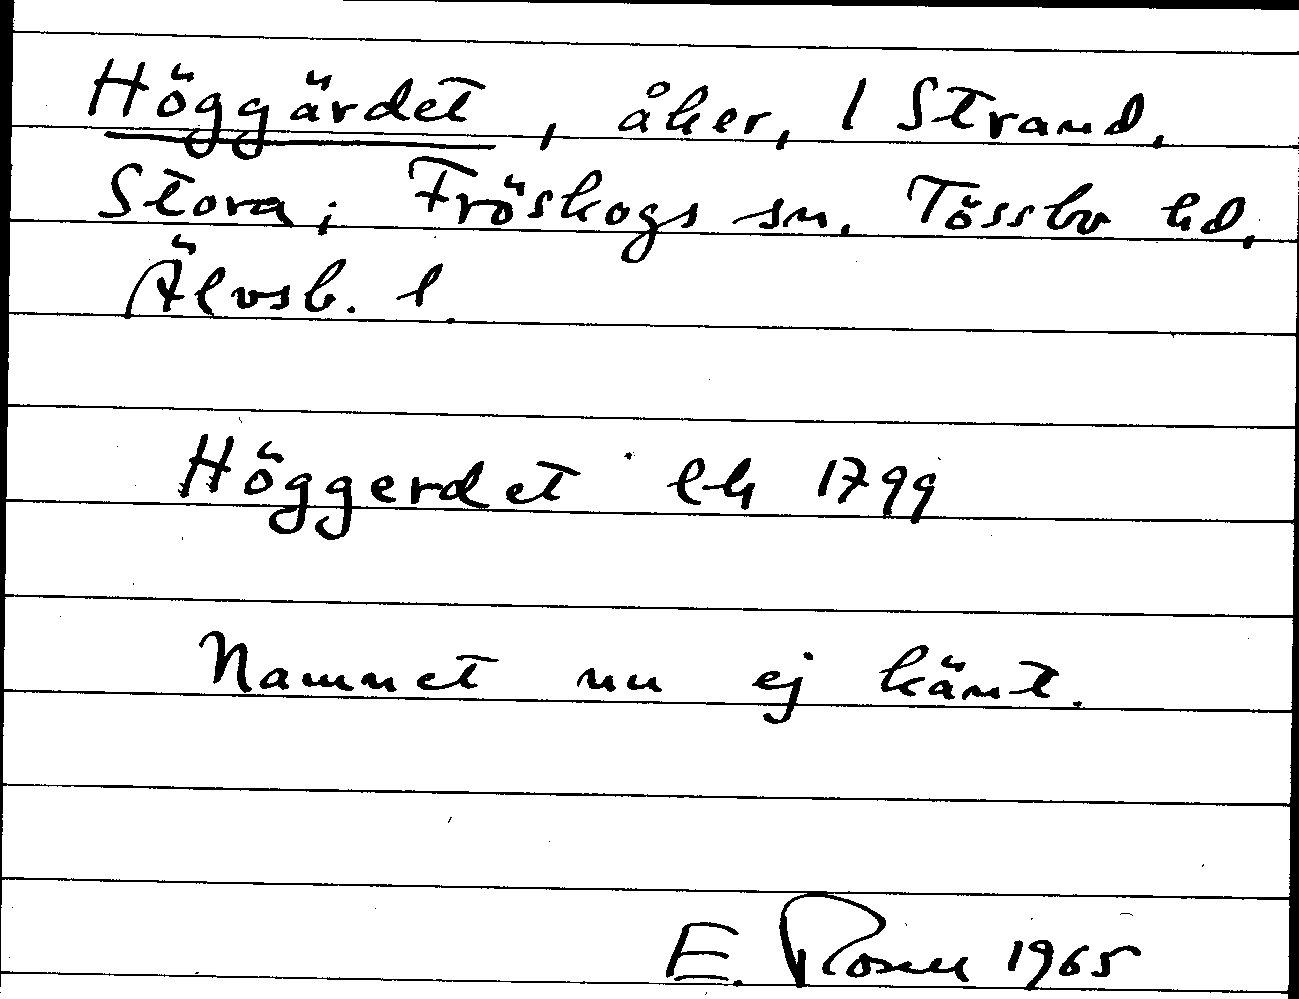 Höggärdet, åker, 1 Strand,
Stora; Fröskogs sn. Tössbo hd.
Älvsb. l.
Höggerdet lh 1799
Namnet nu ej känt.
E. Rosell 1965